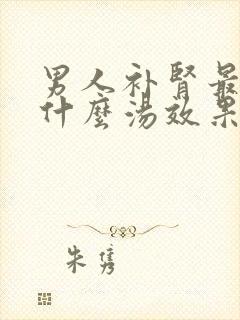 男人补肾最
什麼湯效果
朱隽